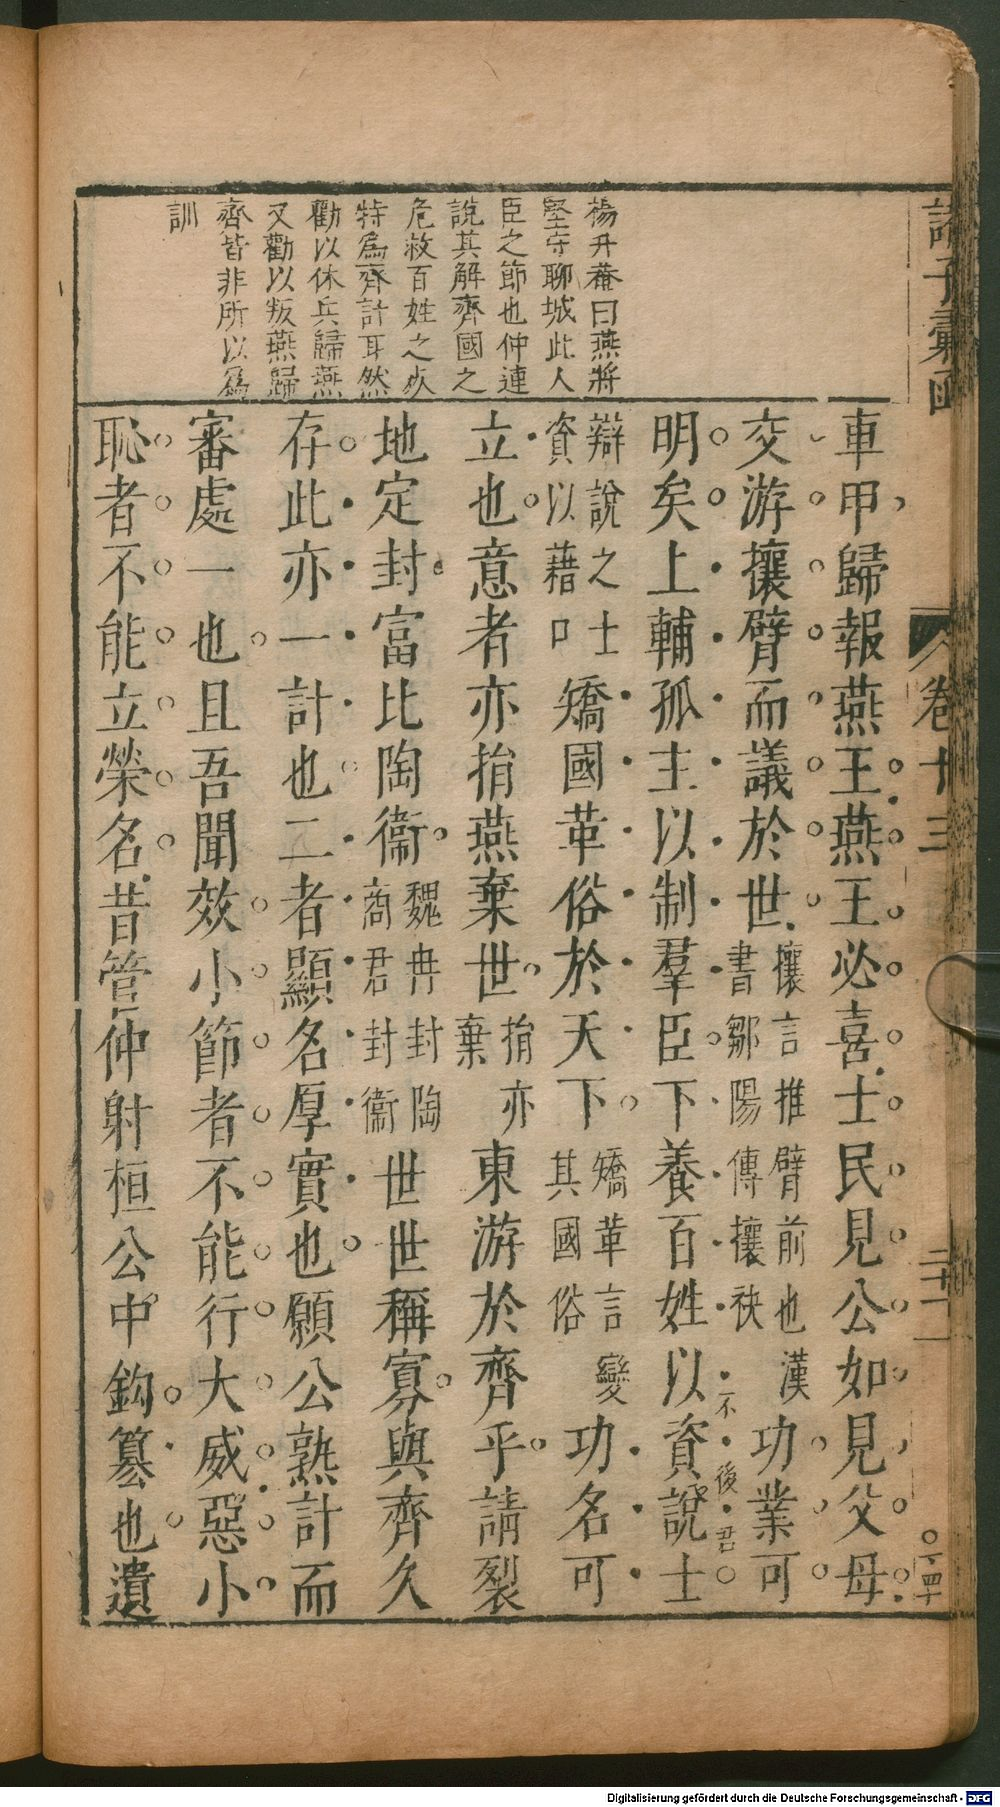 諸子彙函
卷十三
楊升菴曰燕將
堅守聊城此人
臣之節也仲連
說其解齊國之
危救百姓之灾
特爲齊計耳然
勸以休兵歸燕
又勸以叛燕歸
齊皆非所以爲
訓
車甲歸報燕王燕王必喜士民見公如見父母
交游攘臂而議於世攘言推臂前也漢書鄒陽傳攘袂功業可
明矣上輔孤主以制羣臣下養百姓以資說士
不後君
辯說之士資以藉口矯國革俗於天下矯革言變其國俗功名可
立也意者亦捐燕棄世捐亦棄東游於齊乎請裂
地定封富比陶衞魏冉封陶商君封衞世世稱寡與齊久
存此亦一計也二者顯名厚實也願公熟計而
審處一也且吾聞效小節者不能行大威惡小
恥者不能立榮名昔管仲射桓公中鈎篡也遺
Digitalisierung gefördert durch die Deutsche Forschungsgemeinschaft - DFG